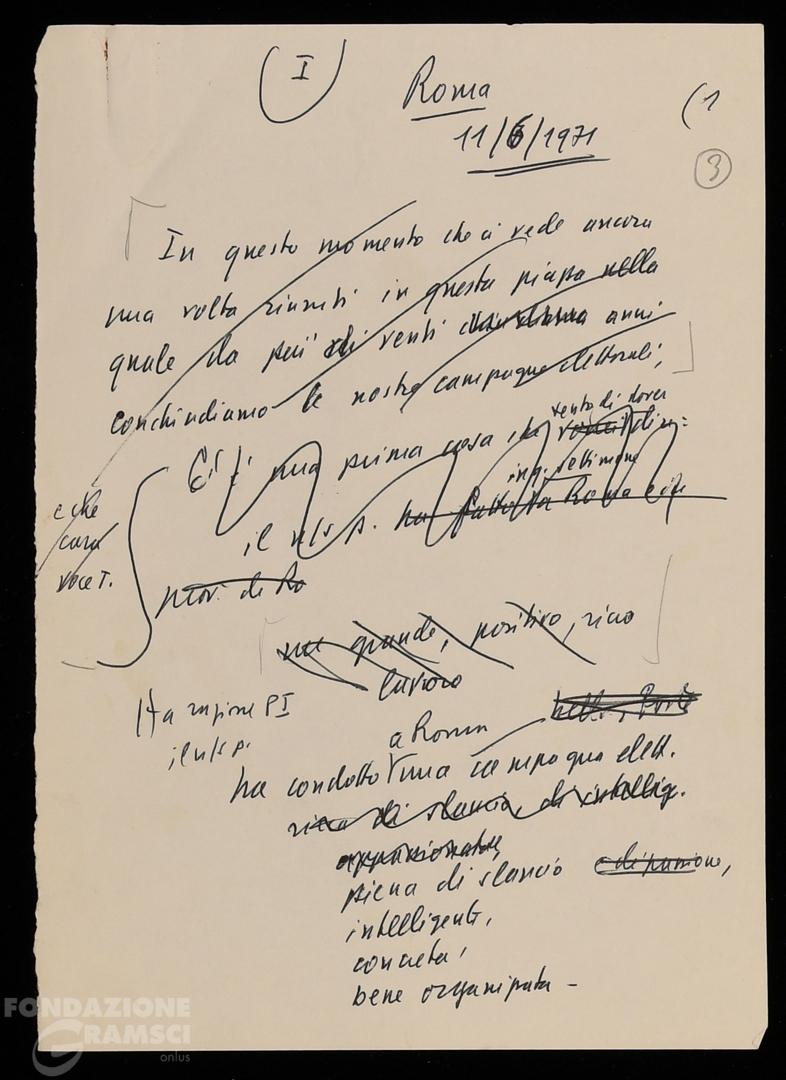 (I)
Roma
(1
11/6/1971
3
In questo momento che ci vede ancora
una volta riuniti in questa piazza nella
quale da più di venti anni
conchiudiamo le nostre campagne elettorali,
C'è una prima cosa che sento di dover
dire:
in q. settimane
il n/s p. ha fatto a Roma e in
prov. di Ro
e che
cara
voce I.
un grande, positivo, ricco
lavoro
Ha ragione PI
il n/s p.
a Roma
ha condotto una campagna elett.
ricca di slancio, di intellig.
appassionata,
piena di slancio e di passione,
intelligente,
concreta,
bene organizzata -
FONDAZIONE
GRAMSCI
onlus